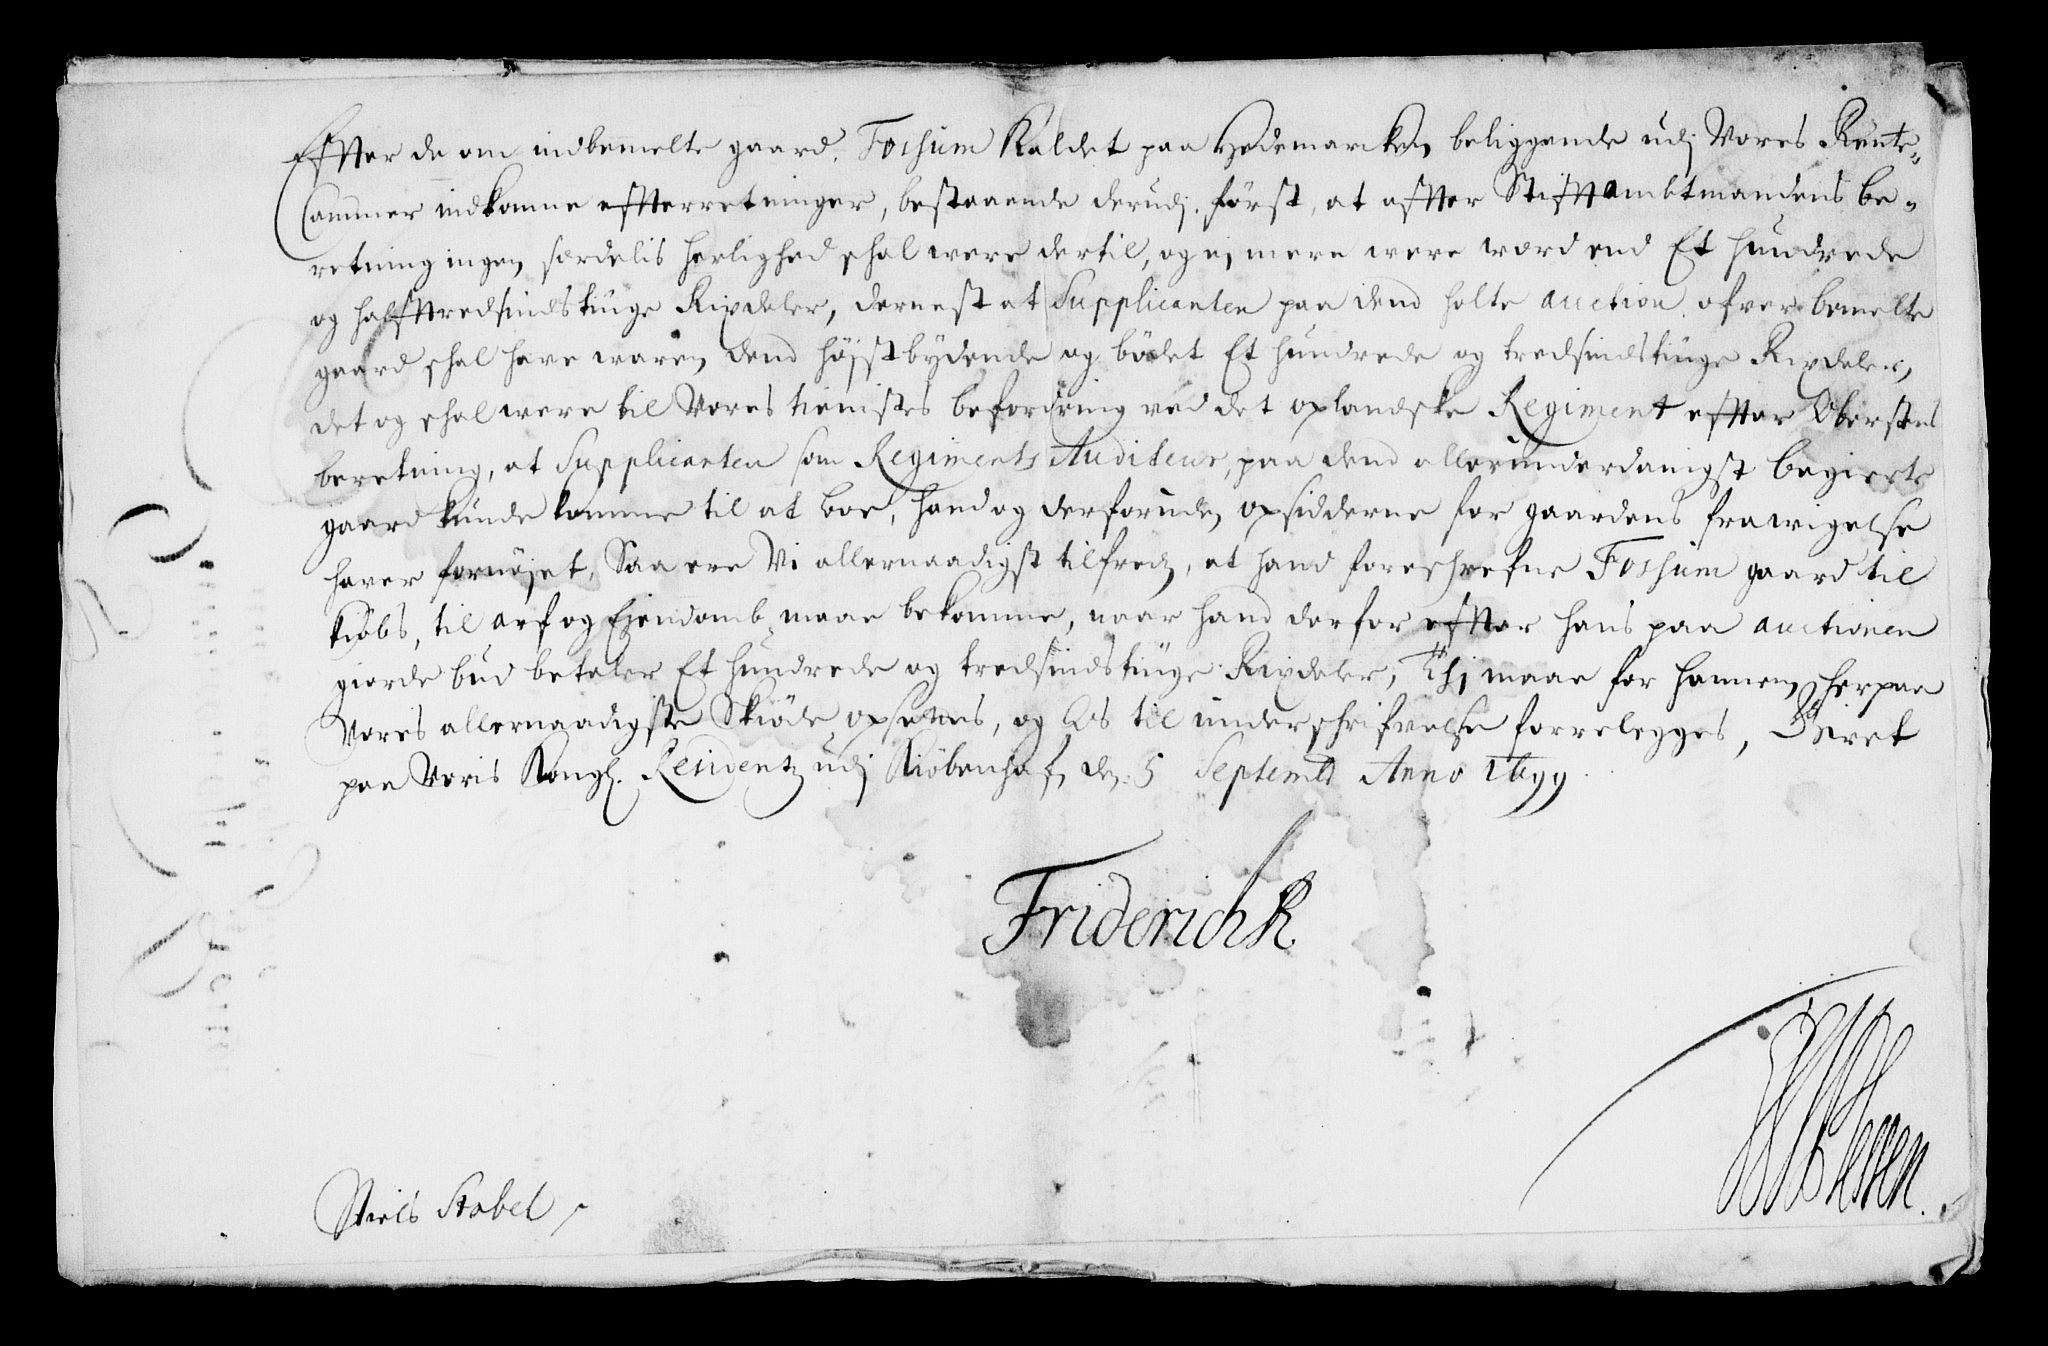 Effter de om indbemelte gaard, Foshum Kaldet paa Hedemarcken, beliggende udj Vores Rente-
Cammer indkomne effterretninger, bestaaende derudj. först, at effter Stifftambtmandens be-
retning ingen særdelis herlighed shal were dertil, og ej mere were word end Et hundrede
og halfftredsindstiuge Rixdaler, dernest at Supplicanten paa dend holte auction ofver bemelte
gaard shal have waren dend höjstbydende og bödet Et hundrede og tredsindstiuge Rixdaler,
det og shal were til Vores tienistes befordring ved det oplandske Regiment effter Oberstens
beretning, at Supplicanten som Regiments Auditeur, paa dend allerunderdanigst begierte
gaard kunde komme til at boe, hand og derforuden opsidderne for gaardens frawigelse
haver fornöjet, Saa ere Vi allernaadigst tilfredz, at hand foreshrefne Foshum gaard til
kiöbs, til arf og Ejendomb, maae bekomme, naar hand derfor effter hans paa auctionen
giorde bud betaler Et hundrede og tredsindstiuge Rixdaler, Thj maae for hannem herpaa
Vores allernaadigste Skiöde opsettes, og Os til undershrifvelse forrelegges, Skrevet
paa Voris Kongl. Residentz udj Kiöbenhafn, den 5 Septembr Anno 1699.
Friderich R
Niels Stabel